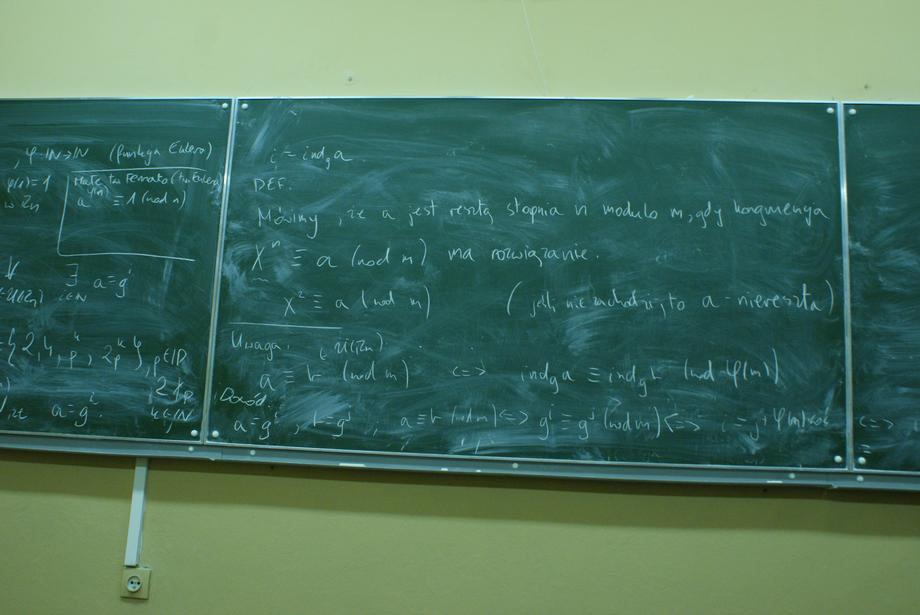 , φ: ℕ→ℕ (funkcja Eulera)
φ(1)=1
w ℤn
Małe tw. Fermata (tw. Eulera)
a^φ(n) ≡ 1 (mod n)
∀ ∃ a=g^i
i∈ℕ
2, 4, p^k, 2p^k}, p∈ℙ
2∤p
że a=g^i. k∈ℕ
i = ind_g a.
DEF.
Mówimy, że a jest resztą stopnia n modulo m, gdy kongruencja
X^n ≡ a (mod m) ma rozwiązanie.
X^2 ≡ a (mod m) (jeśli nie zachodzi, to a - niereszta)
Uwaga.
a ≡ b (mod m) <=> ind_g a ≡ ind_g b (mod φ(m))
Dowód
a=g^i, b=g^j, a≡b (mod m) <=> g^i ≡ g^j (mod m) <=> i=j+φ(m)
<=>
=